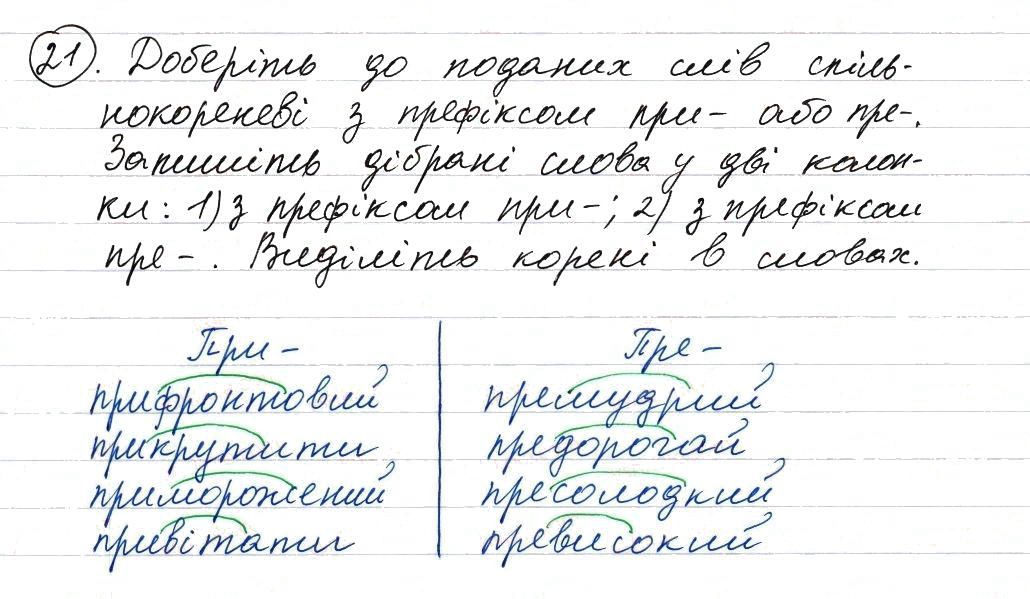 21. Доберіть до поданих слів спіль-
нокореневі з префіксом при- або пре-.
Запишіть дібрані слова у дві колон-
ки: 1) з префіксом при-; 2) з префіксом
пре-. Виділіть корені в словах.
При-
прифронтовий
прикрутити
приморожений
привітати
Пре-
премудрий
предорогий
пресолодкий
превисокий